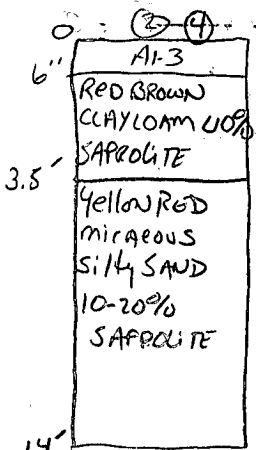 0 2 - 4
A1-3
6"
RED BROWN
CLAY LOAM 40%
SAPROLITE
3.5'
Yellow RED
micaeous
Silty SAND
10-20%
SAPROLITE
14'